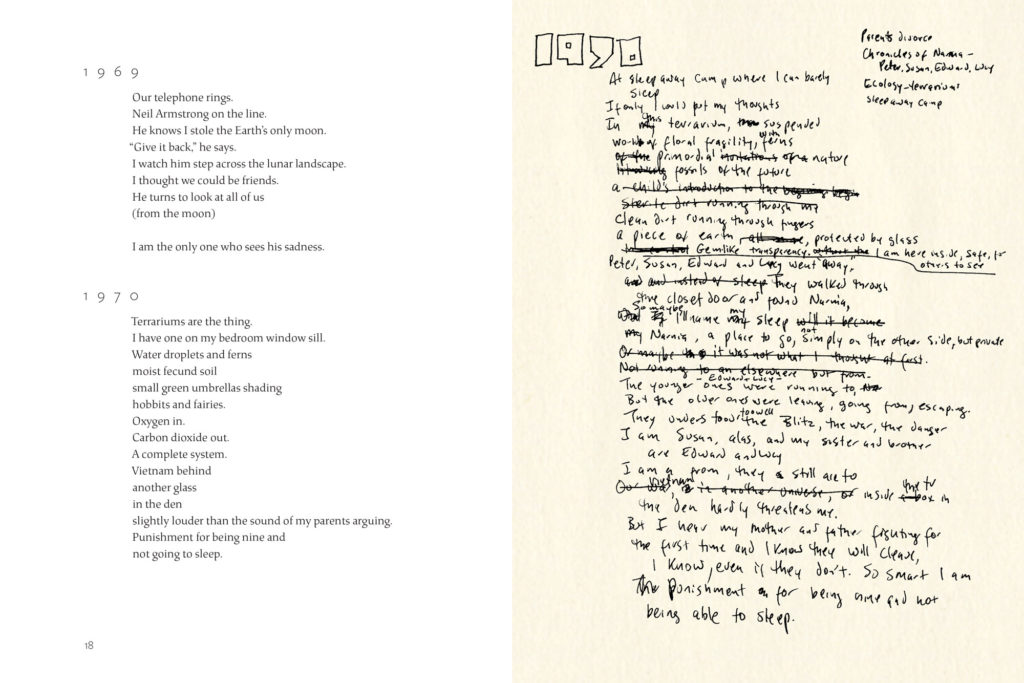 1 9 6 9
Our telephone rings.
Neil Armstrong on the line.
He knows I stole the Earth's only moon.
“Give it back,” he says.
I watch him step across the lunar landscape.
I thought we could be friends.
He turns to look at all of us
(from the moon)
I am the only one who sees his sadness.
1 9 7 0
Terrariums are the thing.
I have one on my bedroom window sill.
Water droplets and ferns
moist fecund soil
small green umbrellas shading
hobbits and fairies.
Oxygen in.
Carbon dioxide out.
A complete system.
Vietnam behind
another glass
in the den
slightly louder than the sound of my parents arguing.
Punishment for being nine and
not going to sleep.
18
1970
Parents divorce
Chronicles of Narnia –
Peter, Susan, Edward, Lucy
Ecology – terrariums
Sleep away camp
At sleep away camp where I can barely
sleep
If only I could put my thoughts
In my this terrarium, suspended
world of floral fragility, with ferns
of the primordial of a nature
fossils of the future
a child's introduction to the beginning begin
dirt running through my
Clean dirt running through fingers
a piece of earth, protected by glass
Gemlike transparency. I am here inside, safe, for
others to see
Peter, Susan, Edward and Lucy went "away,"
and and instead of sleep They walked through
the closet door and found Narnia,
So maybe I'll name my sleep will it become
my Narnia, a place to go, not simply on the other side, but private
Or maybe it was not what I thought at first.
Not running to an elsewhere but from.
The younger ones – Edward & Lucy – were running to,
But the older ones were leaving, going from, escaping.
They understood too well the Blitz, the war, the danger
I am Susan, alas, and my sister and brother
are Edward and Lucy
I am a from, they still are to
Our war, Vietnam, is in another universe, or inside the tv box in
the den hardly threatens me.
But I hear my mother and father fighting for
the first time and I know they will cleave,
I know, even if they don't. So smart I am
The punishment for being nine and not
being able to sleep.